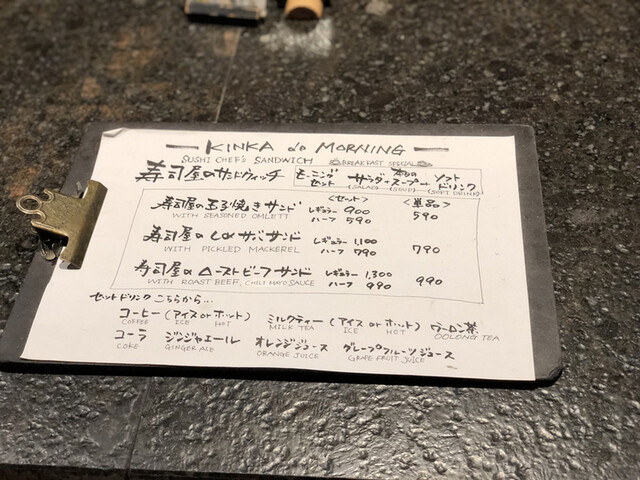 KINKA de MORNING
SUSHI CHEF's SANDWICH BREAKFAST SPECIAL
寿司屋のサンドウィッチ モーニングセット サラダ+本日のスープ+ソフトドリンク
(SALAD) (SOUP) (SOFT DRINK)
<セット> <単品>
寿司屋の玉子焼きサンド レギュラー 900 590
WITH SEASONED OMLETT ハーフ 590
寿司屋のしめサバサンド レギュラー 1,100
WITH PICKLED MACKEREL ハーフ 790 790
寿司屋のローストビーフサンド レギュラー 1,300
WITH ROAST BEEF, CHILI MAYO SAUCE ハーフ 990 990
セットドリンク こちらから...
コーヒー (アイス or ホット) ミルクティー (アイス or ホット) ウーロン茶
COFFEE ICE HOT MILK TEA ICE HOT OOLONG TEA
コーラ ジンジャエール オレンジジュース グレープフルーツジュース
COKE GINGER ALE ORANGE JUICE GRAPE FRUIT JUICE